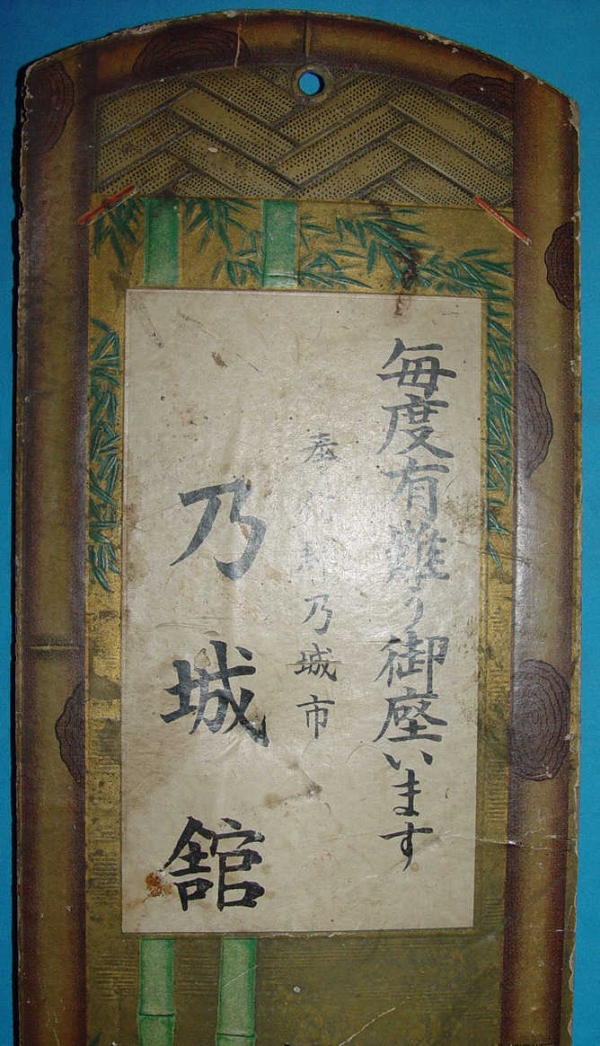 毎度有難う御座います
乃城市
乃城舘